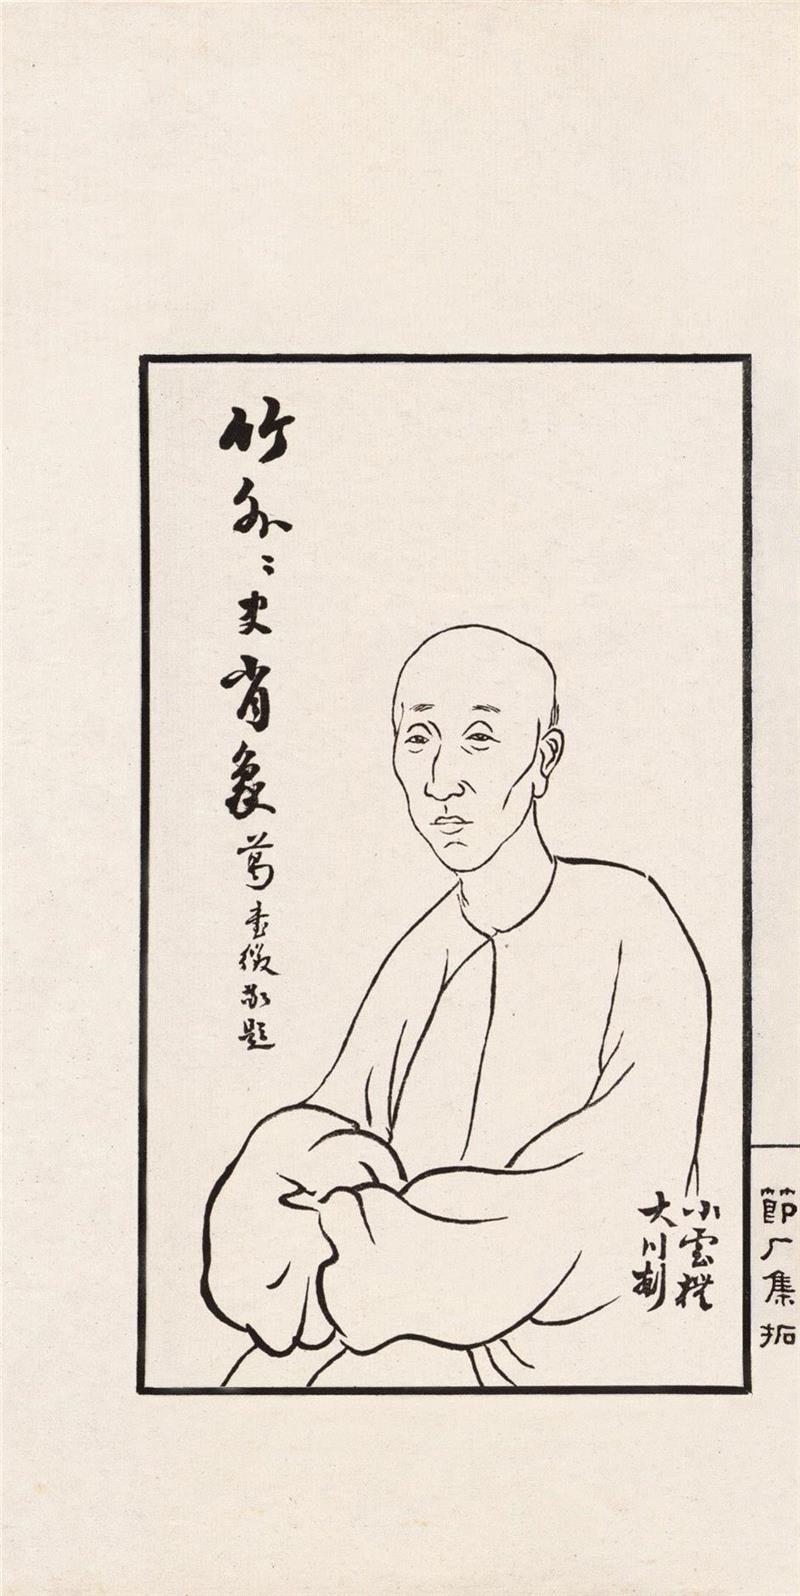 節厂集拓
小雲橅
大川
竹外〻史肖象 葛書徵敬題